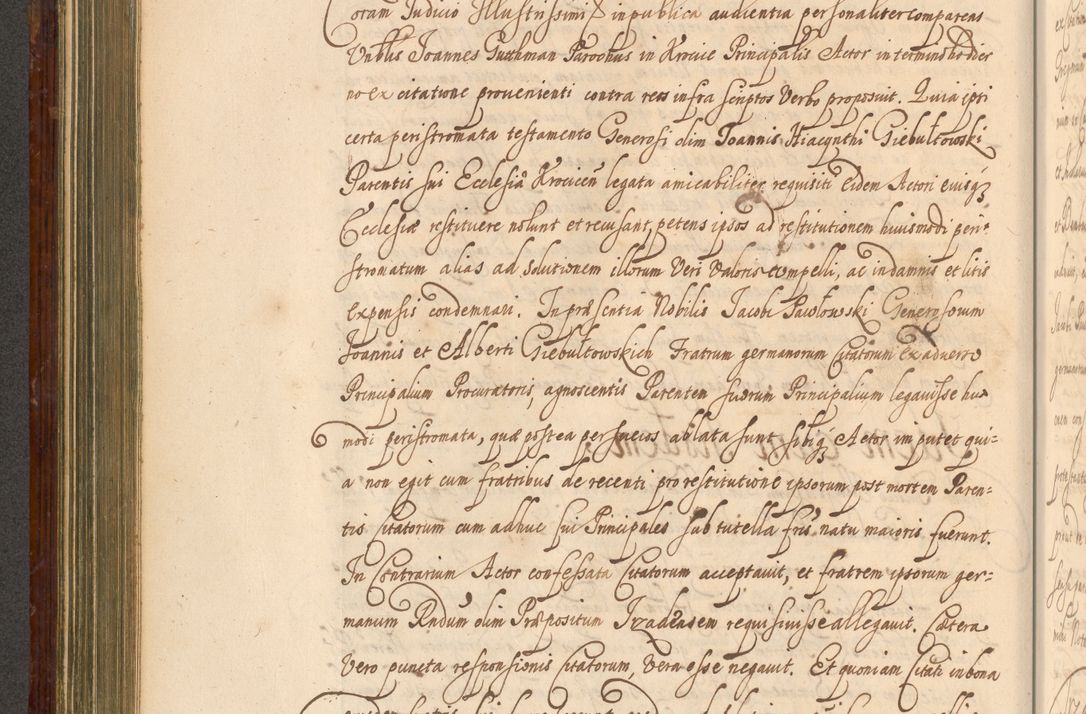 Coram Judicio Illustrissimi & in publica audientia personaliter comparens
Vnblis Joannes Guthman Parochus in Krocice Principalis Actor in termino hodier
no ex citatione provenienti contra reos infra scriptos Verbo proposuit. Quia ipsi
certa peristromata testamento Generosi olim Joannis Hiacynthi Giebułtowski
Parentis sui Ecclesiæ Krociceñ legata amicabiliter requisiti eidem Actori eiusq̃
Ecclesiæ restituere nolunt et recusant, petens ipsos ad restitutionem huiusmodi peri=
stromatum alias ad solutionem illorum Veri Valoris compelli, ac in damnis et litis
expensis condemnari. In præsentia Nobilis Jacobi Pawłowski Generosorum
Joannis et Alberti Giebułtowskich Fratrum germanorum Citatorum ex adverso
Principalium Procuratoris, agnoscentis Parentem suorum Principalium legavisse hu=
modi peristromata, quæ postea per suecos ablata sunt, sibiq̃ Actor imputet qui=
a non egit cum fratribus de recenti pro restitutione ipsorum post mortem Paren=
tis Citatorum cum adhuc sui Principales sub tutella fris natu maioris fuerunt.
In Contrarium Actor confessata Citatorum acceptavit, et fratrem ipsorum ger=
manum Rndum olim Præpositum requisivisse allegavit. Cætera
Vero puncta responsionis Citatorum, Vera esse negavit. Et quoniam Citati in bona